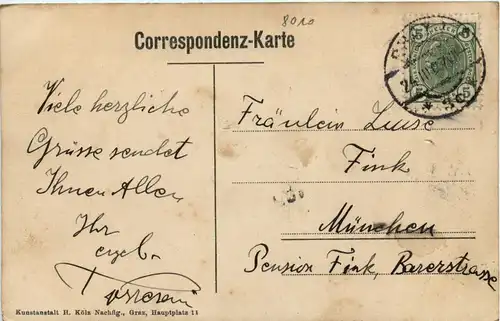 8010
Correspondenz-Karte
Viele herzliche
Grüsse sendet
Ihnen Allen
Ihr
ergeb.
Fräulein Luise
Fink
München
Pension Fink, Barerstrasse
Kunstanstalt H. Kölz Nachflg., Graz, Hauptplatz 11